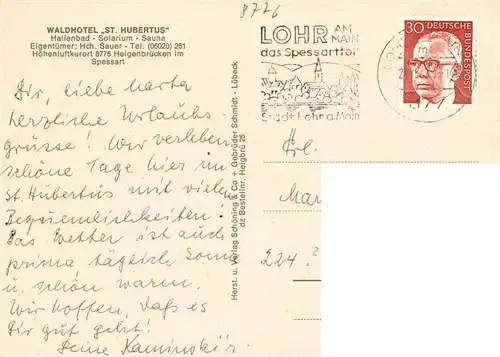 8776
WALDHOTEL „ST. HUBERTUS"
Hallenbad - Solarium - Sauna
Eigentümer: Hch. Sauer - Tel. (06020) 261
Höhenluftkurort 8776 Heigenbrücken im
Spessart
Dir, liebe
herzliche Urlaubs-
grüsse! Wir verleben
schöne Tage hier im
St. Hubertus mit vielen
Bequemlichkeiten!
Das Wetter ist auch
prima täglich Sonne
u. schön warm.
Wir hoffen, daß es
Dir gut geht!
Deine Kaminski's
Herst. u. Verlag Schöning & Co + Gebrüder Schmidt - Lübeck
dz Bestellnr. Heigbrü 25
LOHR AM
MAIN
das Spessarttor
Stadt Lohr a. Main
30
DEUTSCHE BUNDESPOST
Mar
224